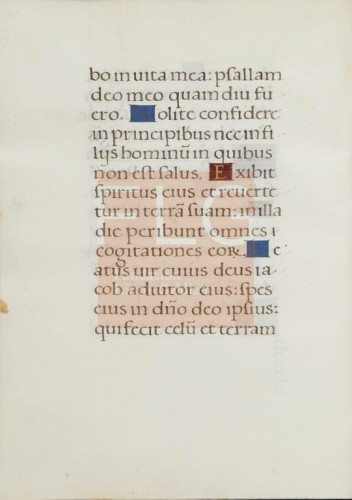 bo in uita mea: psallam
deo meo quam diu fu
ero. Nolite confidere
in principibus nec in fi
lijs hominū in quibus
ñon est salus. Exibit
spiritus eius et reuerte
tur in terrā suam: in illa
die peribunt omnes
cogitationes eoꝝ. Be
atus uir cuius deus ia
cob adiutor eius: spes
eius in dño deo ipsius:
qui fecit celū et terram